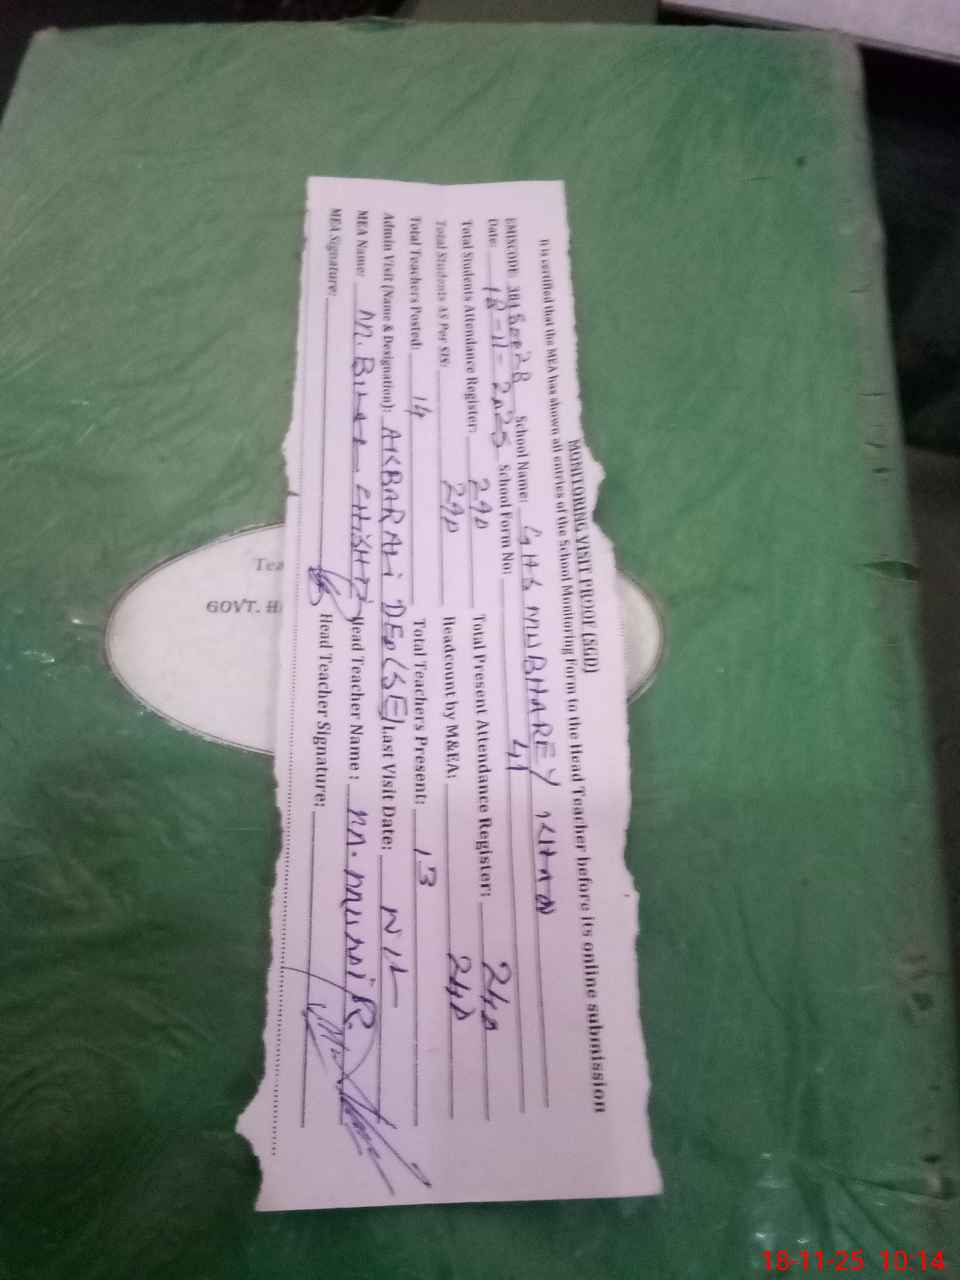 MONITORING VISIT PROOF (SGD)
It is certified that the MEA has shown all entries of the School Monitoring Form to the Head Teacher before its online submission
EMISCODE School Name: GHS MUBHAREY KHAN
Date: 18-11-2025 School Form No: 41
Total Students Attendance Register: 290 Total Present Attendance Register: 240
Total Students AS Per SIS: 290 Headcount by M&EA: 240
Total Teachers Posted: 14 Total Teachers Present: 13
Admin Visit (Name & Designation): AKBAR ALi DEO (SE) Last Visit Date: NIL
MEA Name: M. BILAL CHISHTI Head Teacher Name: M. MUNIR
MEA Signature: Head Teacher Signature:
Tea
GOVT. H
18-11-25 10:14